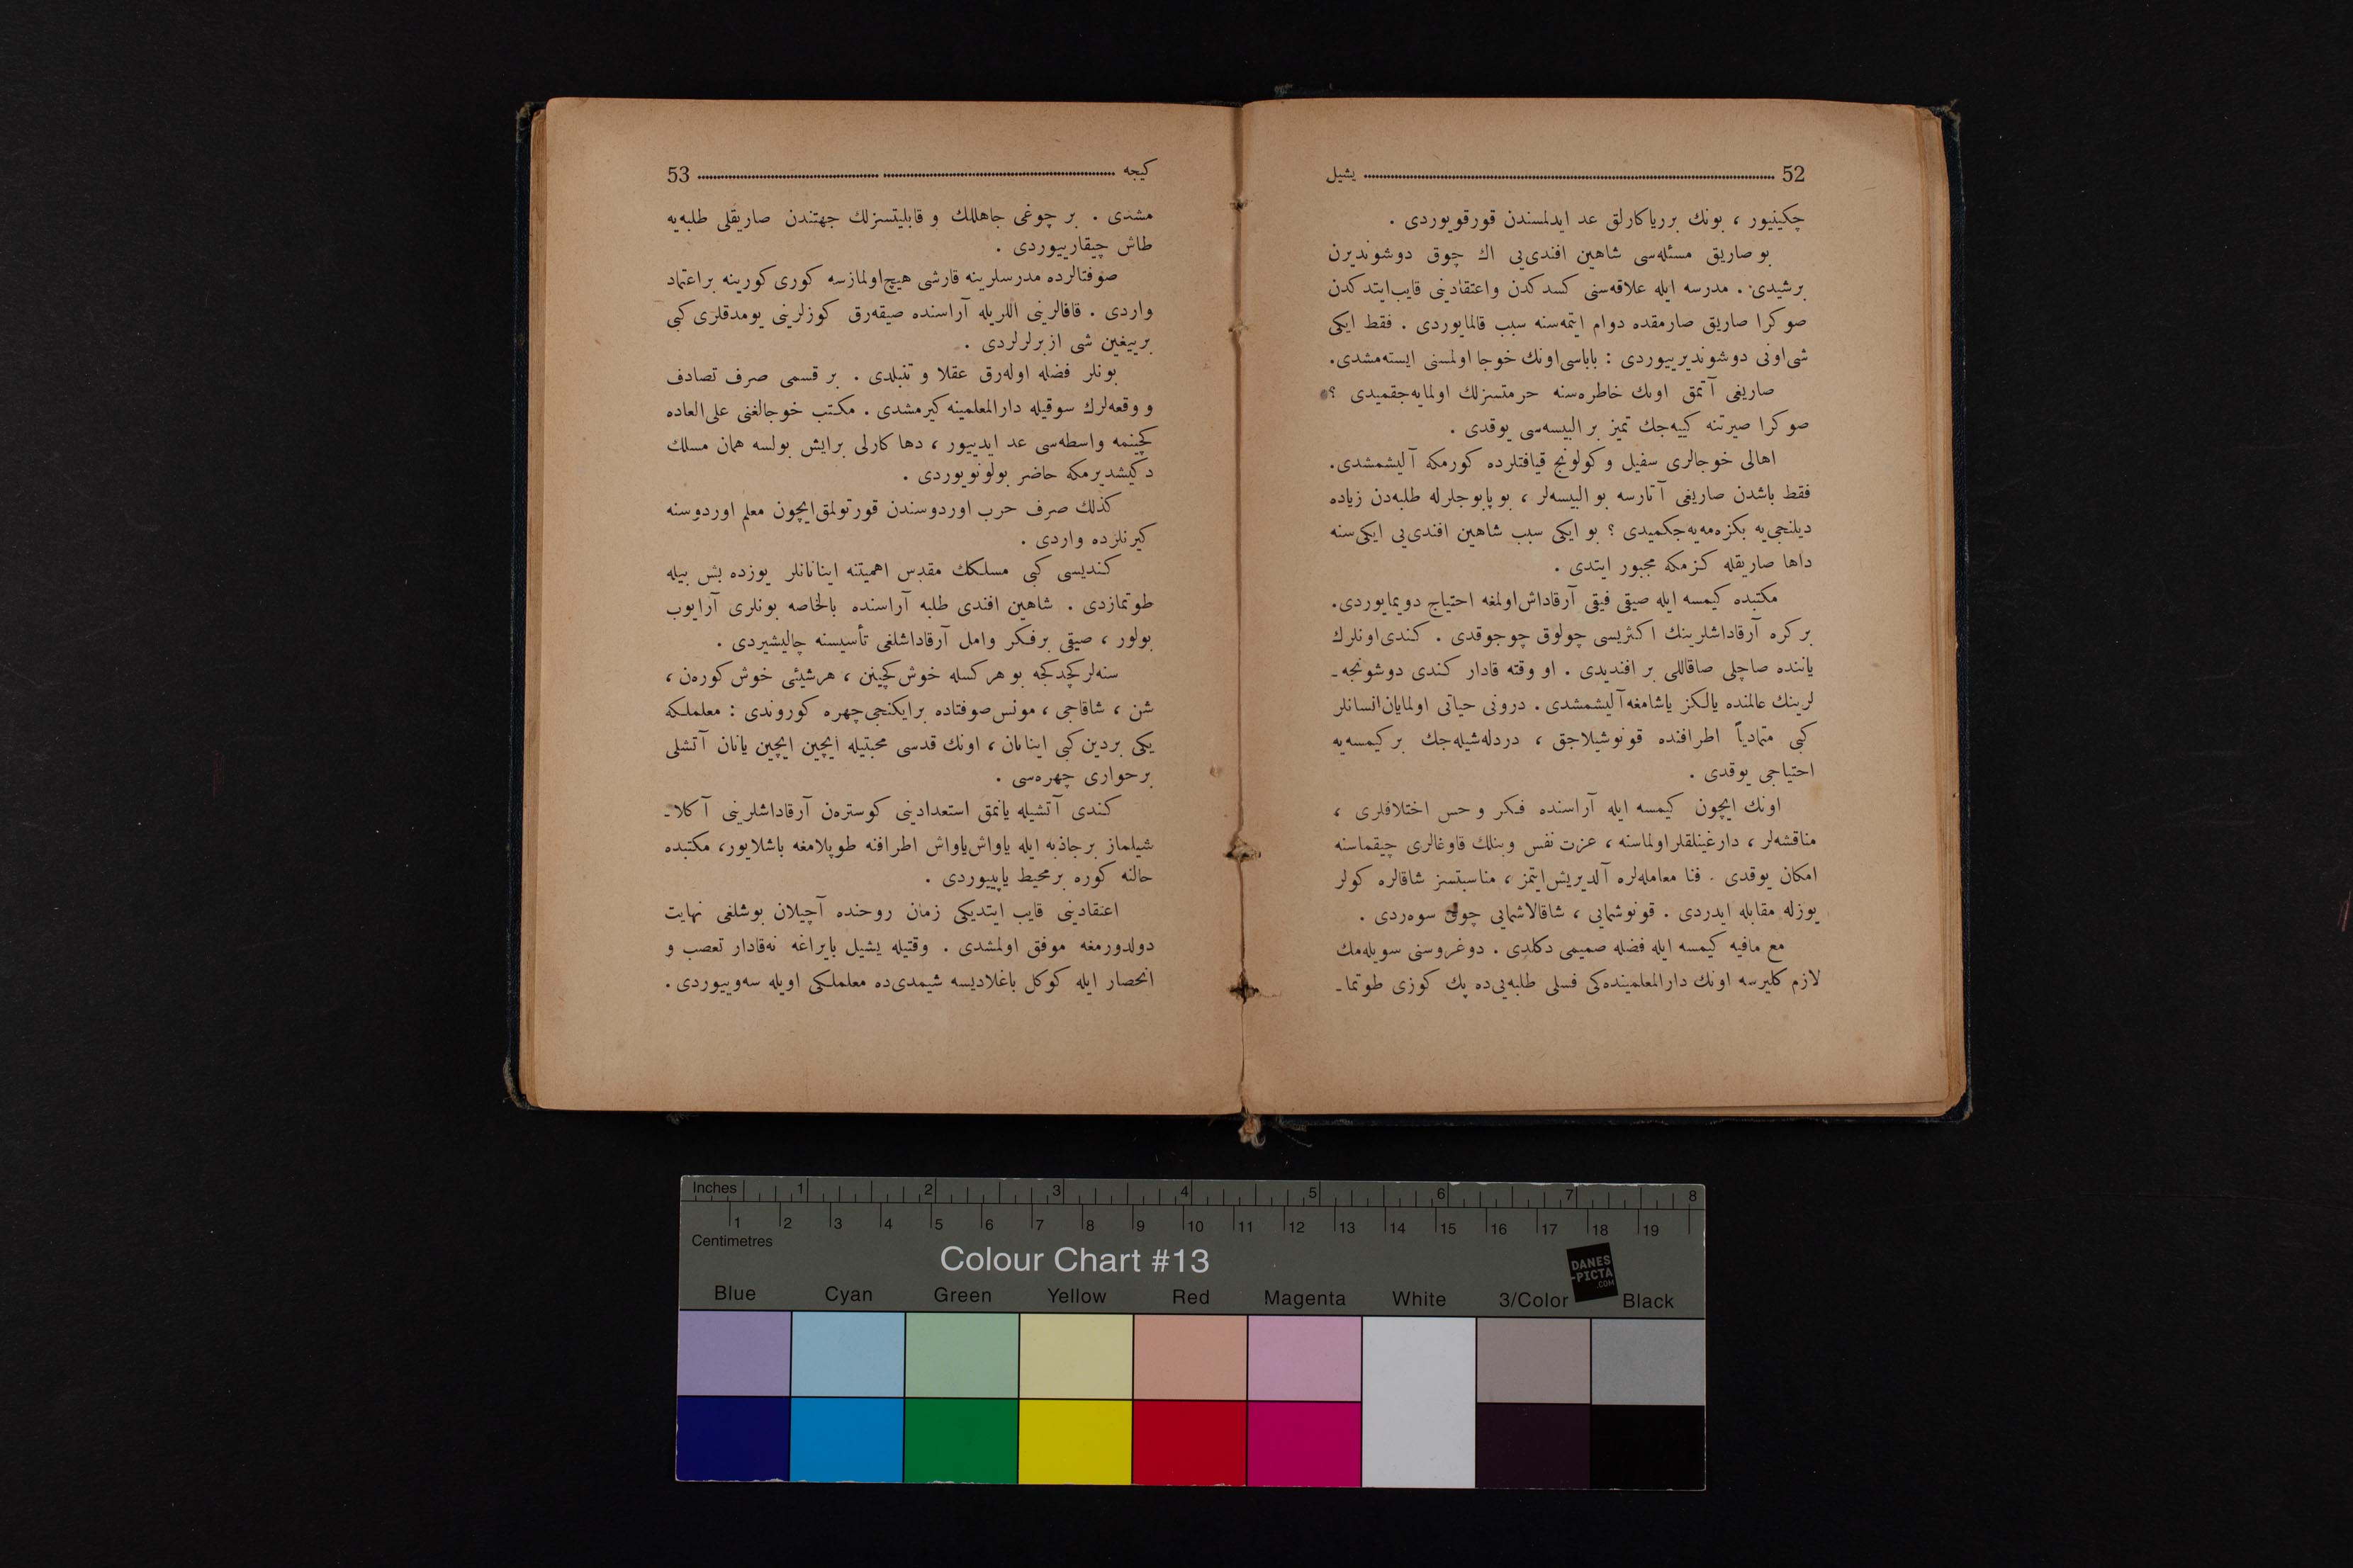 52 يشيل
چكينيور ، بونك بررياكارلق عد ايدلمسندن قورقويوردى .
بو صاريق مسئله‌سى شاهين افندى‌يى اك چوق دوشونديرن
برشيدى . مدرسه ايله علاقه‌سنى كسدكدن واعتقادينى قايب‌ايتدكدن
صوكرا صاريق صارمقده دوام ايتمه‌سنه سبب قالمايوردى . فقط ايكى
شى‌اونى دوشونديرييوردى : باباسى‌اونك خوجا اولمسنى ايسته‌مشدى.
صاريغى آتمق اونك خاطره‌سنه حرمتسزلك اولمايه‌جقميدى ؟
صوكرا صيرتنه كييه‌جك تميز بر البيسه‌سى يوقدى .
اهالى خوجالرى سفيل وكولونج قيافتلرده كورمكه آليشمشدى.
فقط باشدن صاريغى آتارسه بو البيسه‌لر ، بو پابوجلرله طلبه‌دن زياده
ديلنجى‌يه بكزه‌مه‌يه‌جكميدى ؟ بو ايكى سبب شاهين افندى‌يى ايكى‌سنه
داها صاريقله كزمكه مجبور ايتدى .
مكتبده كيمسه ايله صيقى فيقى آرقاداش‌اولمغه احتياج دويمايوردى.
بركره آرقاداشلرينك اكثريسى چولوق چوجوقدى . كندى‌اونلرك
ياننده صاچلى صاقاللى بر افنديدى . او وقته قادار كندى دوشونجه‌ـ
لرينك عالمنده يالكز ياشامغه‌آليشمشدى . درونى حياتى اولمايان‌انسانلر
كبى متمادياً اطرافنده قونوشيلاجق ، دردله‌شيله‌جك بركيمسه‌يه
احتياجى يوقدى .
اونك ايچون كيمسه ايله آراسنده فكر و حس اختلافلرى ،
مناقشه‌لر ، دارغينلقلر اولماسنه ، عزت نفس وبنلك قاوغالرى چيقماسنه
امكان يوقدى . فنا معامله‌لره آلديريش‌ايتمز ، مناسبتسز شاقالره كولر
يوزله مقابله ايدردى . قونوشمايى ، شاقالاشمايى چوق سوه‌ردى .
مع مافيه كيمسه ايله فضله صميمى دكلدى . دوغروسنى سويله‌مك
لازم كليرسه اونك دارالمعلمينده‌كى فسلى طلبه‌يى‌ده پك كوزى طوتماـ
كيجه 53
مشدى . بر چوغى جاهللك و قابليتسزلك جهتندن صاريقلى طلبه‌يه
طاش چيقارييوردى .
صوفتالرده مدرسلرينه قارشى هيچ‌اولمازسه كورى كورينه براعتماد
واردى . قافالرينى اللريله آراسنده صيقه‌رق كوزلرينى يومدقلرى كبى
برييغين شى ازبرلرلردى .
بونلر فضله اوله‌رق عقلا و تنبلدى . بر قسمى صرف تصادف
و وقعه‌لرك سوقيله دارالمعلمينه كيرمشدى . مكتب خوجالغنى على‌العاده
كچينمه واسطه‌سى عد ايدييور ، دها كارلى برايش بولسه همان مسلك
دكيشديرمكه حاضر بولونويوردى .
كذلك صرف حرب اوردوسندن قورتولمق‌ايچون معلم اوردوسنه
كيرنلرده واردى .
كنديسى كبى مسلكك مقدس اهميتنه اينانانلر يوزده بش بيله
طوتمازدى . شاهين افندى طلبه آراسنده بالخاصه بونلرى آرايوب
بولور ، صيقى برفكر وامل آرقاداشلغى تأسيسنه چاليشيردى .
سنه‌لر كچدكجه بو هركسله خوش كچينن ، هرشيئى خوش كوره‌ن ،
شن ، شاقاجى ، مونس‌صوفتاده برايكنجى‌چهره كوروندى : معلملكه
يكى بردين كبى اينانان ، اونك قدسى محبتيله ايچين ايچين يانان آتشلى
برحوارى چهره‌سى .
كندى آتشيله يانمق استعدادينى كوستره‌ن آرقاداشلرينى آكلاـ
شيلماز برجاذبه ايله ياواش‌ياواش اطرافنه طوپلامغه باشلايور، مكتبده
حالنه كوره برمحيط ياپييوردى .
اعتقادينى قايب ايتديكى زمان روحنده آچيلان بوشلغى نهايت
دولدورمغه موفق اولمشدى . وقتيله يشيل بايراغه نه‌قادار تعصب و
انحصار ايله كوكل باغلاديسه شيمدى‌ده معلملكى اويله سه‌وييوردى .
Inches 1 2 3 4 5 6 7 8
1 2 3 4 5 6 7 8 9 10 11 12 13 14 15 16 17 18 19
Centimetres
Colour Chart #13
DANES
-PICTA
.COM
Blue Cyan Green Yellow Red Magenta White 3/Color Black